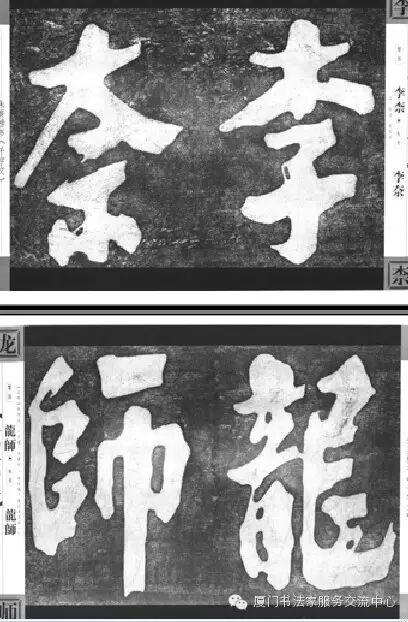 李柰
李
李柰・李奈
柰
龍師
龙
龍師・龍師
师
厦门书法家服务交流中心